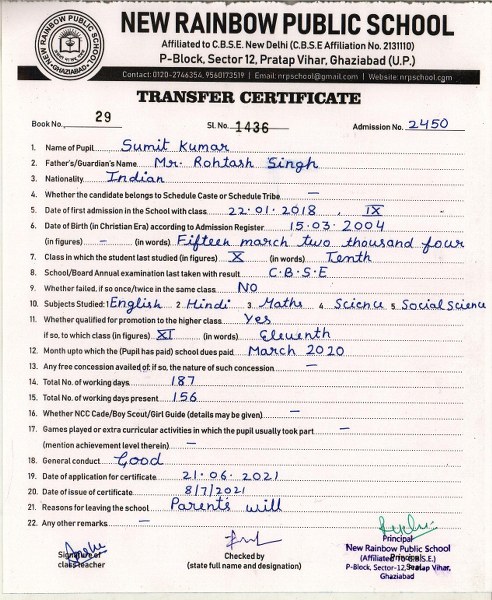 NEW RAINBOW PUBLIC SCHOOL
Affiliated to C.B.S.E. New Delhi (C.B.S.E Affiliation No. 2131110)
P-Block, Sector 12, Pratap Vihar, Ghaziabad (U.P.)
Contact: 0120-2746354, 9560173519 | Email: nrpschool@gmail.com | Website: nrpschool.com
NEW RAINBOW PUBLIC SCHOOL GHAZIABAD
TRANSFER CERTIFICATE
Book No. 29 Sl. No. 1436 Admission No. 2450
1. Name of Pupil Sumit Kumar
2. Father's/Guardian's Name Mr. Rohtash Singh
3. Nationality Indian
4. Whether the candidate belongs to Schedule Caste or Schedule Tribe —
5. Date of first admission in the School with class 22.01.2018, IX
6. Date of Birth (in Christian Era) according to Admission Register 15.03.2004
(in figures) – (in words) Fifteen march two thousand four
7. Class in which the student last studied (in figures) X (in words) Tenth
8. School/Board Annual examination last taken with result C.B.S.E
9. Whether failed, if so once/twice in the same class NO
10. Subjects Studied: 1 English 2. Hindi 3. Maths 4. Science 5. Social Science
11. Whether qualified for promotion to the higher class Yes
if so, to which class (in figures) XI (in words) Eleventh
12. Month upto which the (Pupil has paid) school dues paid March 2020
13. Any free concession availed of: if so, the nature of such concession —
14. Total No. of working days 187
15. Total No. of working days present 156
16. Whether NCC Cade/Boy Scout/Girl Guide (details may be given) —
17. Games played or extra curricular activities in which the pupil usually took part —
(mention achievement level therein) —
18. General conduct Good
19. Date of application for certificate 21.06.2021
20. Date of issue of certificate 8/7/2021
21. Reasons for leaving the school Parents will
22. Any other remarks —
Signature of
class teacher
Checked by
(state full name and designation)
Principal
New Rainbow Public School
(Affiliated To C.B.S.E.)
Principal
P-Block, Sector-12, Pratap Vihar,
Ghaziabad